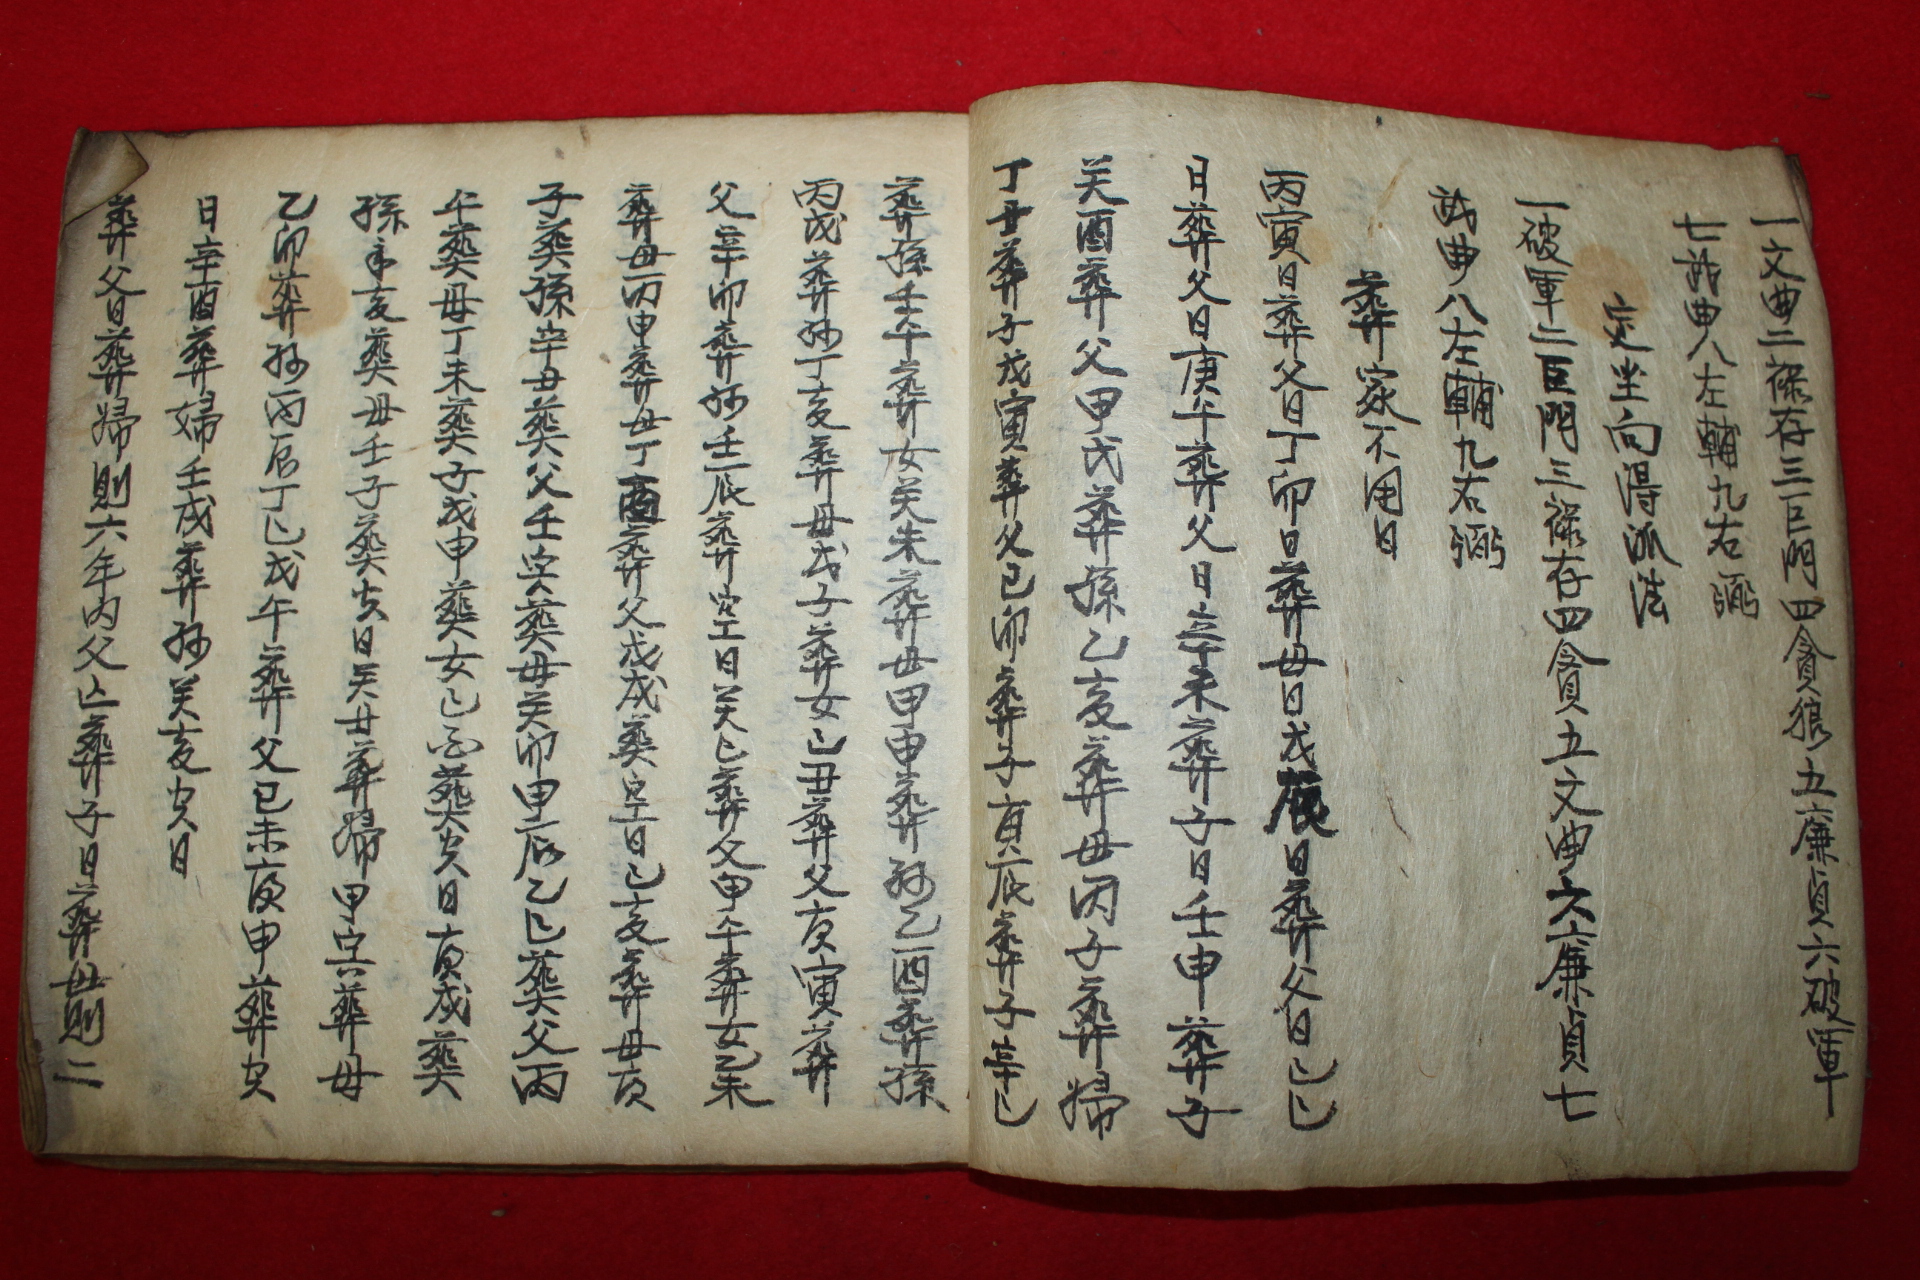 一文曲二祿存三巨門四貪狼五廉貞六破軍
七武曲八左輔九右弼
定坐向得派法
一破軍二巨門三祿存四貪五文曲六廉貞七
武曲八左輔九右弼
葬家不用日
丙寅日葬父日丁卯日葬母日戊辰日葬父日己巳
日葬父日庚午葬父日辛未葬子日壬申葬子
癸酉葬父甲戌葬孫乙亥葬母丙子葬婦
丁丑葬子戊寅葬父己卯葬子庚辰葬子辛巳
葬孫壬午葬女癸未葬母甲申葬孫乙酉葬孫
丙戌葬孫丁亥葬母戊子葬女己丑葬父庚寅葬
父辛卯葬孫壬辰葬空日癸巳葬父甲午葬女乙未
葬母丙申葬母丁酉葬父戊戌葬空日己亥葬母庚
子葬孫辛丑葬父壬寅葬母癸卯甲辰乙巳葬父丙
午葬母丁未葬子戊申葬女己酉葬亥日庚戌葬
孫辛亥葬母壬子葬亥日癸丑葬婦甲寅葬母
乙卯葬孫丙辰丁巳戊午葬父己未庚申葬亥
日辛酉葬婦壬戌葬孫癸亥亥日
葬父日葬婦則六年內父亡葬子日葬母則二